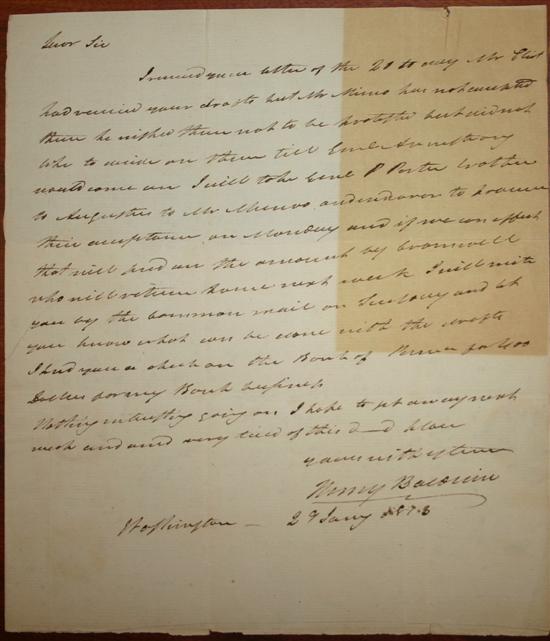 Dear Sir
I received your letter of the 20 to day Mr
had received your drafts but Mr has not accepted
them he wished them not to be protested but did not
like to decide on them till Genl Armstrong
would come on I will take Genl P Porter brother
to Augustus to Mr and endeavor to procure
their acceptance on Monday and if we can effect
that will send on the amount by
who will return home next week I will write
you by the common mail on and let
you know what can be done with the drafts
I send you a check on the Bank of for 400
Dollars for my Bank business
Nothing interesting going on I hope to get away next
week and am very tired of this d—d place
yours with esteem
Henry Baldwin
Washington — 2 Jany